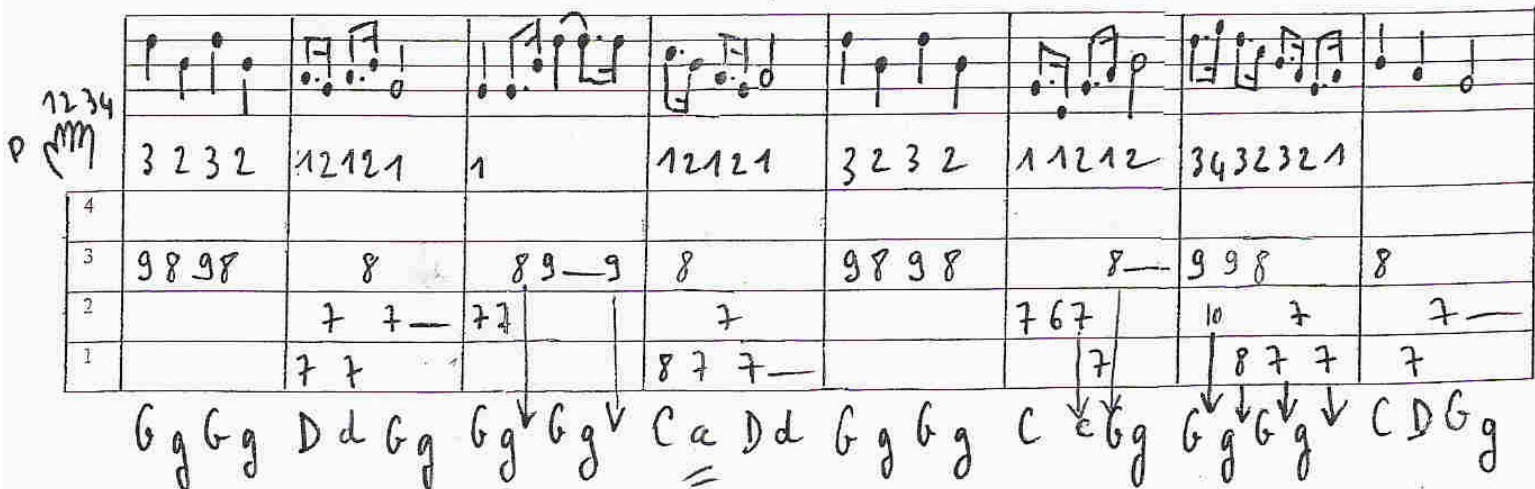 1234
P 3 2 3 2 12121 1 12121 3 2 3 2 11212 3432321
4
3 9 8 9 8 8 8 9—9 8 9 8 9 8 8— 9 9 8 8
2 7 7— 77 7 7 6 7 10 7 7—
1 7 7 8 7 7— 7 8 7 7 7
G g G g D d G g G g G g C a D d G g G g C c G g G g G g C D G g